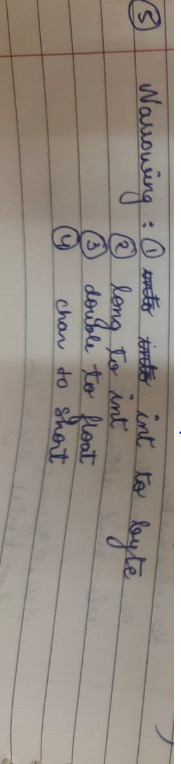 ⑤ Narrowing : ① int to byte
② long to int
③ double to float
④ char to short